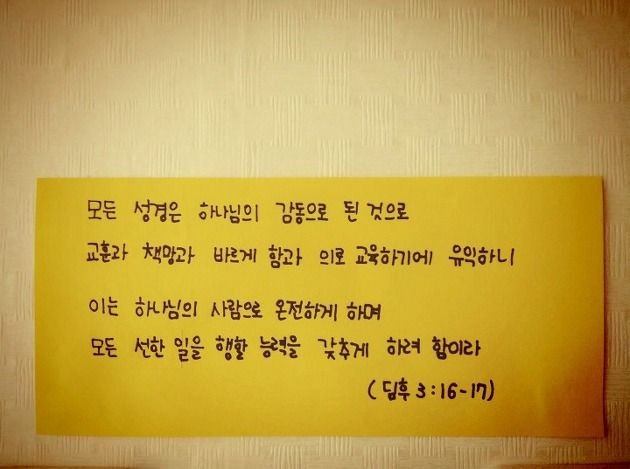 모든 성경은 하나님의 감동으로 된 것으로
교훈과 책망과 바르게 함과 의로 교육하기에 유익하니
이는 하나님의 사람으로 온전하게 하며
모든 선한 일을 행할 능력을 갖추게 하려 함이라
(딤후 3:16-17)